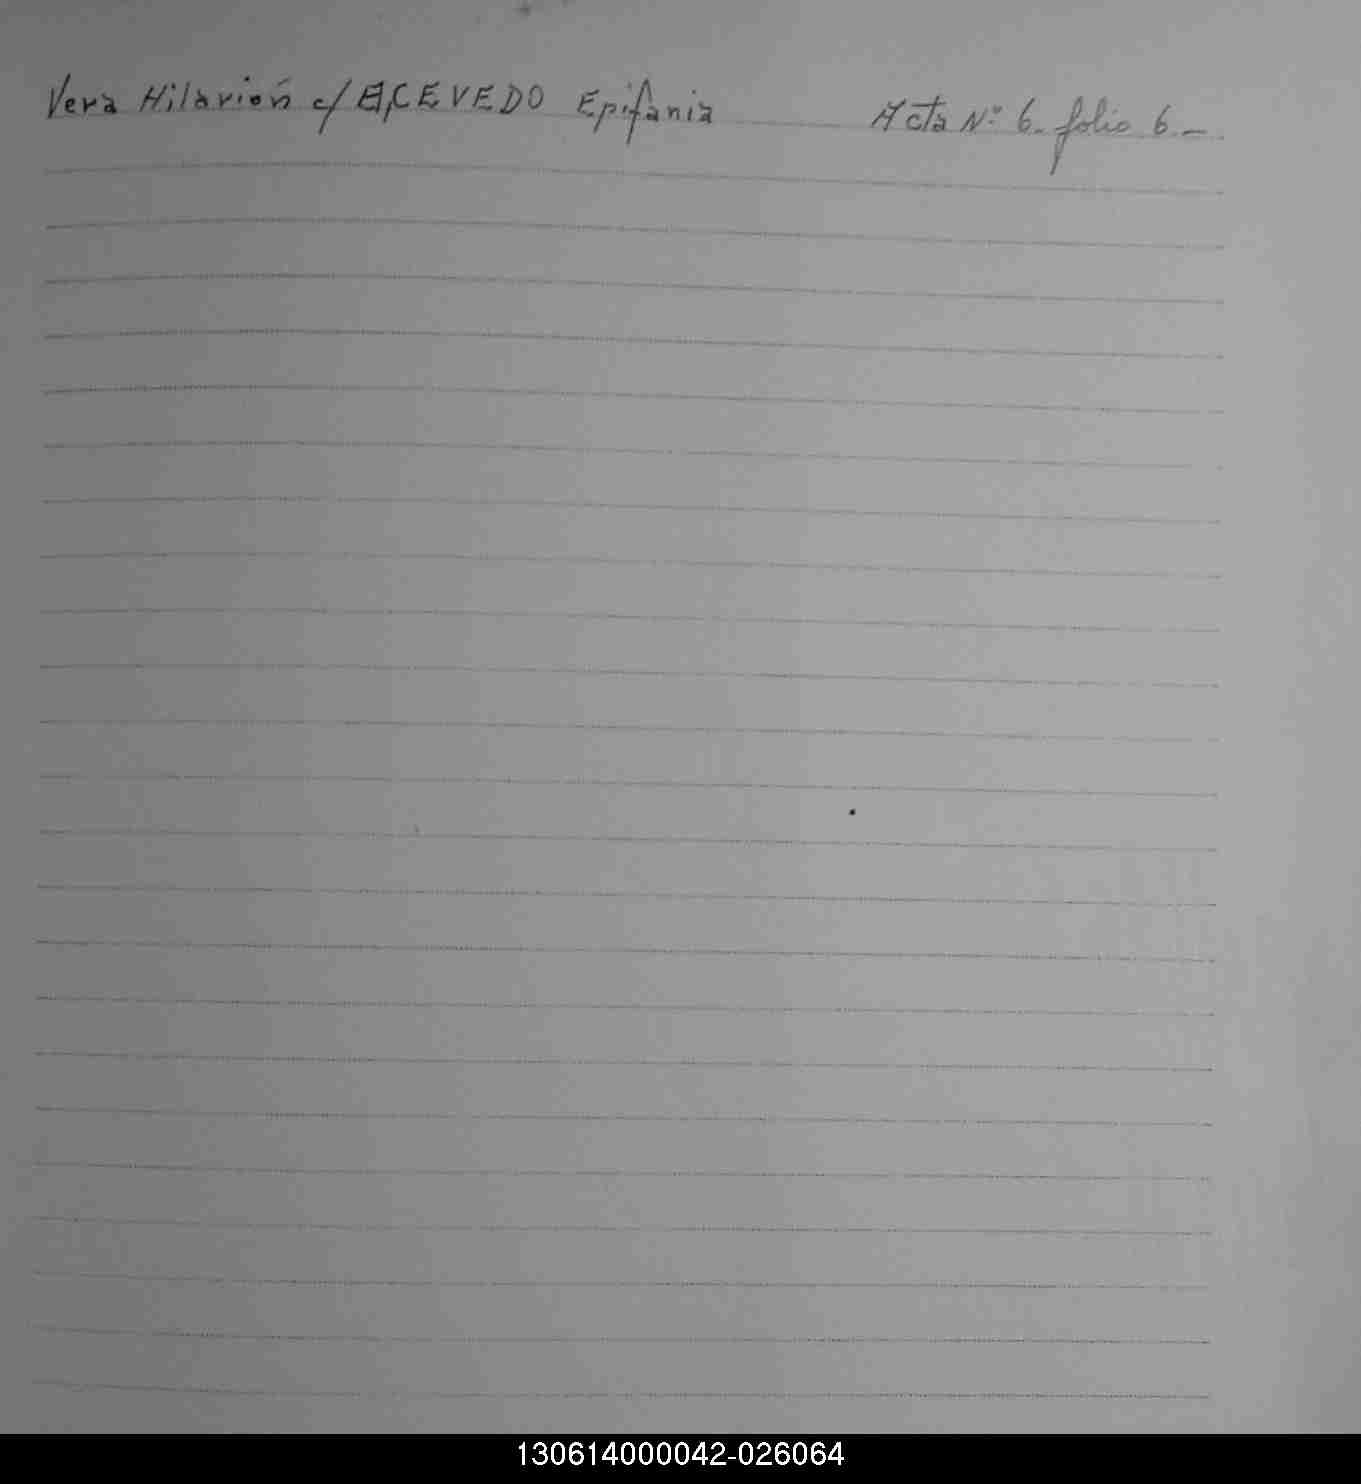 Vera Hilarión c/ ACEVEDO Epifania Acta Nº 6. folio 6.-
130614000042-026064